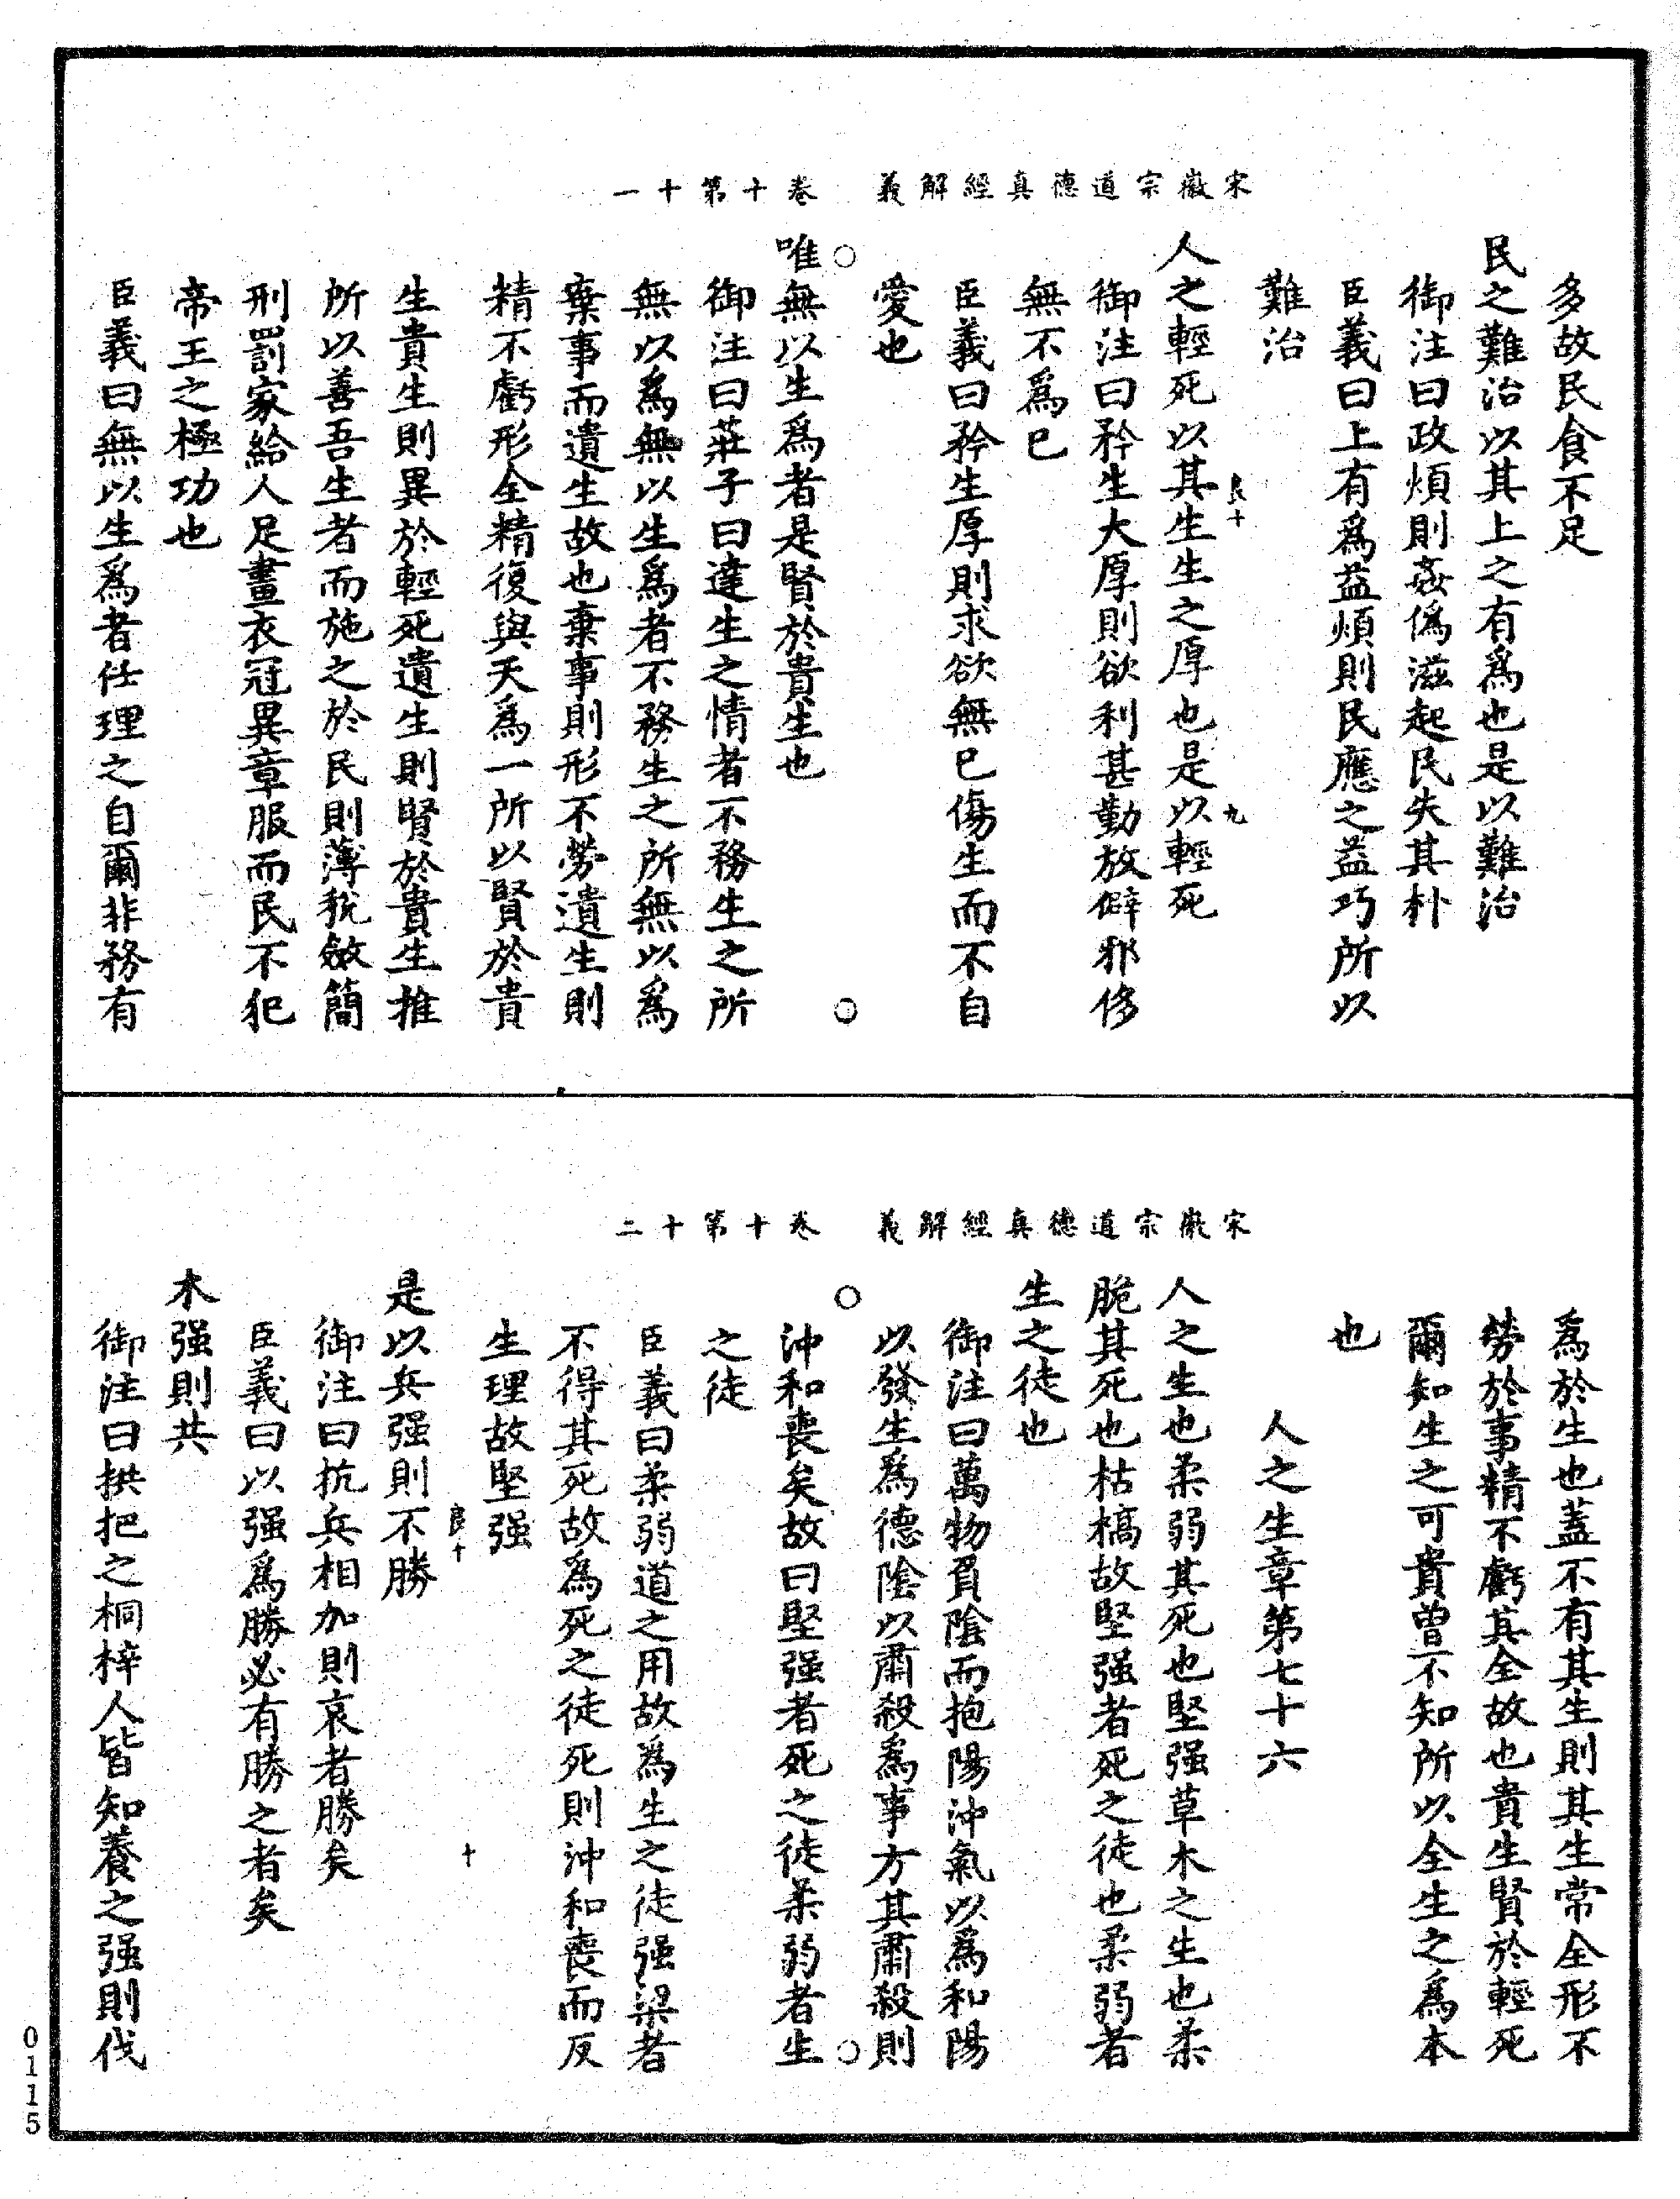 宋徽宗道德真經解義　卷十第十一
多故民食不足
民之難治以其上之有爲也是以難治
御注曰政煩則姦僞滋起民失其朴
臣義曰上有爲益煩則民應之益巧所以
難治
良十　九
人之輕死以其生生之厚也是以輕死
御注曰矜生大厚則欲利甚勤放僻邪侈
無不爲已
臣義曰矜生厚則求欲無已傷生而不自
愛也
唯無以生爲者是賢於貴生也
御注曰莊子曰達生之情者不務生之所
無以爲無以生爲者不務生之所無以爲
棄事而遺生故也棄事則形不勞遺生則
精不虧形全精復與天爲一所以賢於貴
生貴生則異於輕死遺生則賢於貴生推
所以善吾生者而施之於民則薄稅斂簡
刑罰家給人足畫衣冠異章服而民不犯
帝王之極功也
臣義曰無以生爲者任理之自爾非務有
宋徽宗道德真經解義　卷十第十二
爲於生也蓋不有其生則其生常全形不
勞於事精不虧其全故也貴生賢於輕死
爾知生之可貴曾不知所以全生之爲本
也
人之生章第七十六
人之生也柔弱其死也堅强草木之生也柔
脆其死也枯槁故堅强者死之徒也柔弱者
生之徒也
御注曰萬物負陰而抱陽沖氣以爲和陽
以發生爲德陰以肅殺爲事方其肅殺則
沖和喪矣故曰堅强者死之徒柔弱者生
之徒
臣義曰柔弱道之用故爲生之徒强梁者
不得其死故爲死之徒死則沖和喪而反
生理故堅强
良十　十
是以兵强則不勝
御注曰抗兵相加則哀者勝矣
臣義曰以强爲勝必有勝之者矣
木强則共
御注曰拱把之桐梓人皆知養之强則伐
0115